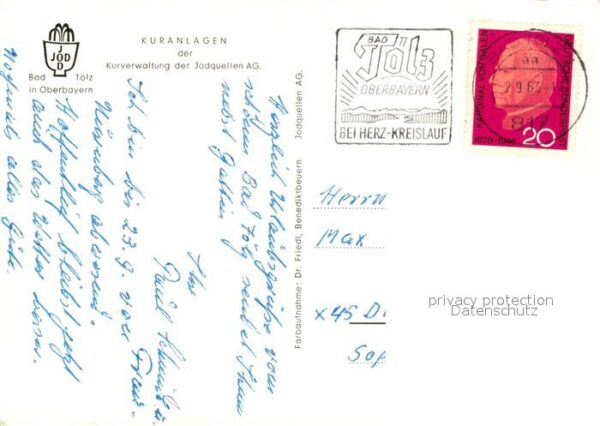 JOD
JOD
Bad Tölz
in Oberbayern
KURANLAGEN
der
Kurverwaltung der Jodquellen AG.
Herzlich Urlaubsgrüße vom
schönen Bad Tölz sendet Ihnen
nebst Gattin
Ihr
Paul
u. Frau.
Ich bin bis 23. 9. von
Nürnberg abwesend.
Hoffentlich bleibt jetzt
auch das Wetter besser.
Nochmals alles Gute.
Farbaufnahme: Dr. Friedl, Benediktbeuern Jodquellen AG.
BAD
Tölz
OBERBAYERN
BEI HERZ-KREISLAUF
KARDINAL VON GALEN
DEUTSCHE BUNDESPOST
1878-1946
20
aa
817
Herrn
Max
x 45 D
privacy protection
Datenschutz